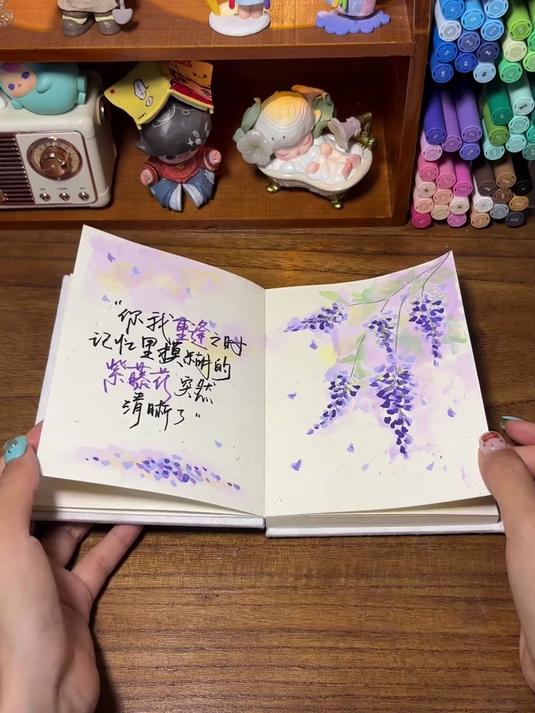 "你我重逢之时
记忆里模糊的
紫藤花突然
清晰了"